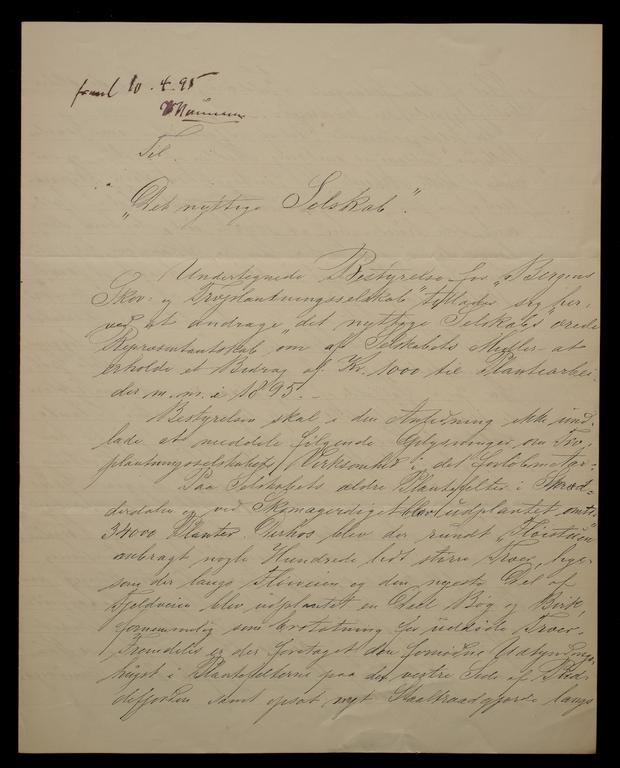 10-4-95
Til
"Det nyttige Selskab".
Undertegnede Bestyrelse for "Bergens
Skov- og Træplantningsselskab" tillader sig her-
ved at andrage "det nyttige Selskabs" ærede
Repræsentantskab om af Selskabets Midler at
erholde et Bidrag af Kr. 1000 til Plantearbei-
der m. m. i 1895.
Bestyrelsen skal i den Anledning ikke und-
lade at meddele følgende Oplysninger om Træ-
plantningsselskabets Virksomhed i det forløbne Aar.
Paa Selskabets ældre Plantefelter i Skræd-
derdalen og ved Skomagerdiget blev udplantet omtr.
34000 Planter. Derhos blev der rundt "Fløistuen"
anbragt nogle Hundrede lidt større Træer, lige-
som der langs Fløiveien og den nyeste Del af
Fjeldveien blev udplantet en Deel Bøg og Birk,
fornemmelig som Erstatning for uddøde Træer.
Fremdeles er der foretaget den fornødne Udtynding
i Plantefelterne paa den vestre Side af
samt opsat nyt Staaltraadgjerde langs